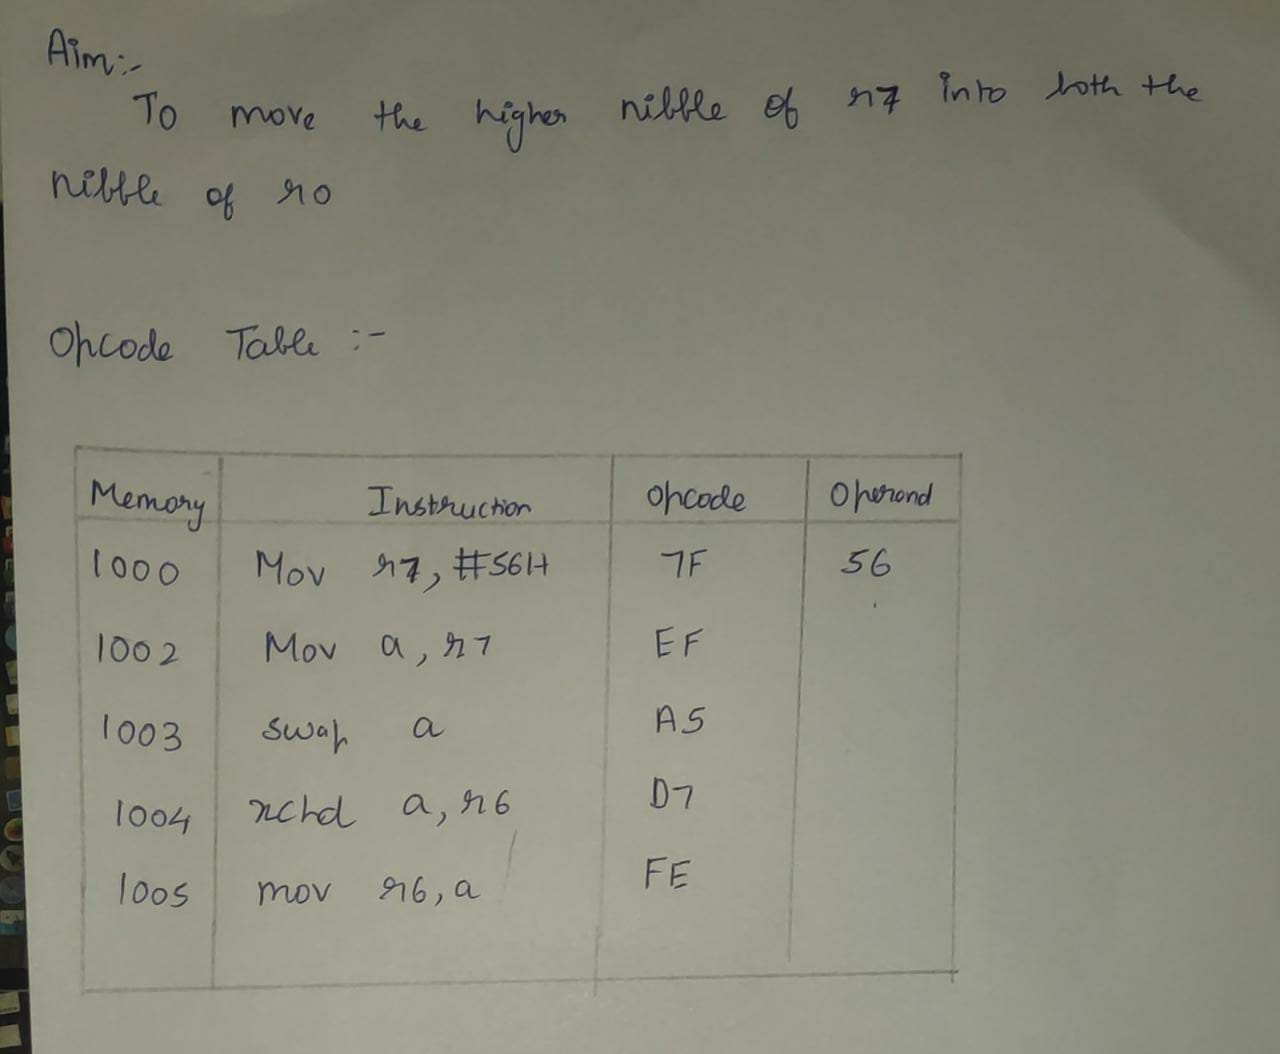 Aim:-
To move the higher nibble of r7 into both the
nibble of r0
Opcode Table :-
Memory Instruction Opcode Operand
1000 Mov r7, #56H 7F 56
1002 Mov a, r7 EF
1003 swap a A5
1004 xchd a, r6 D7
1005 mov r6, a FE